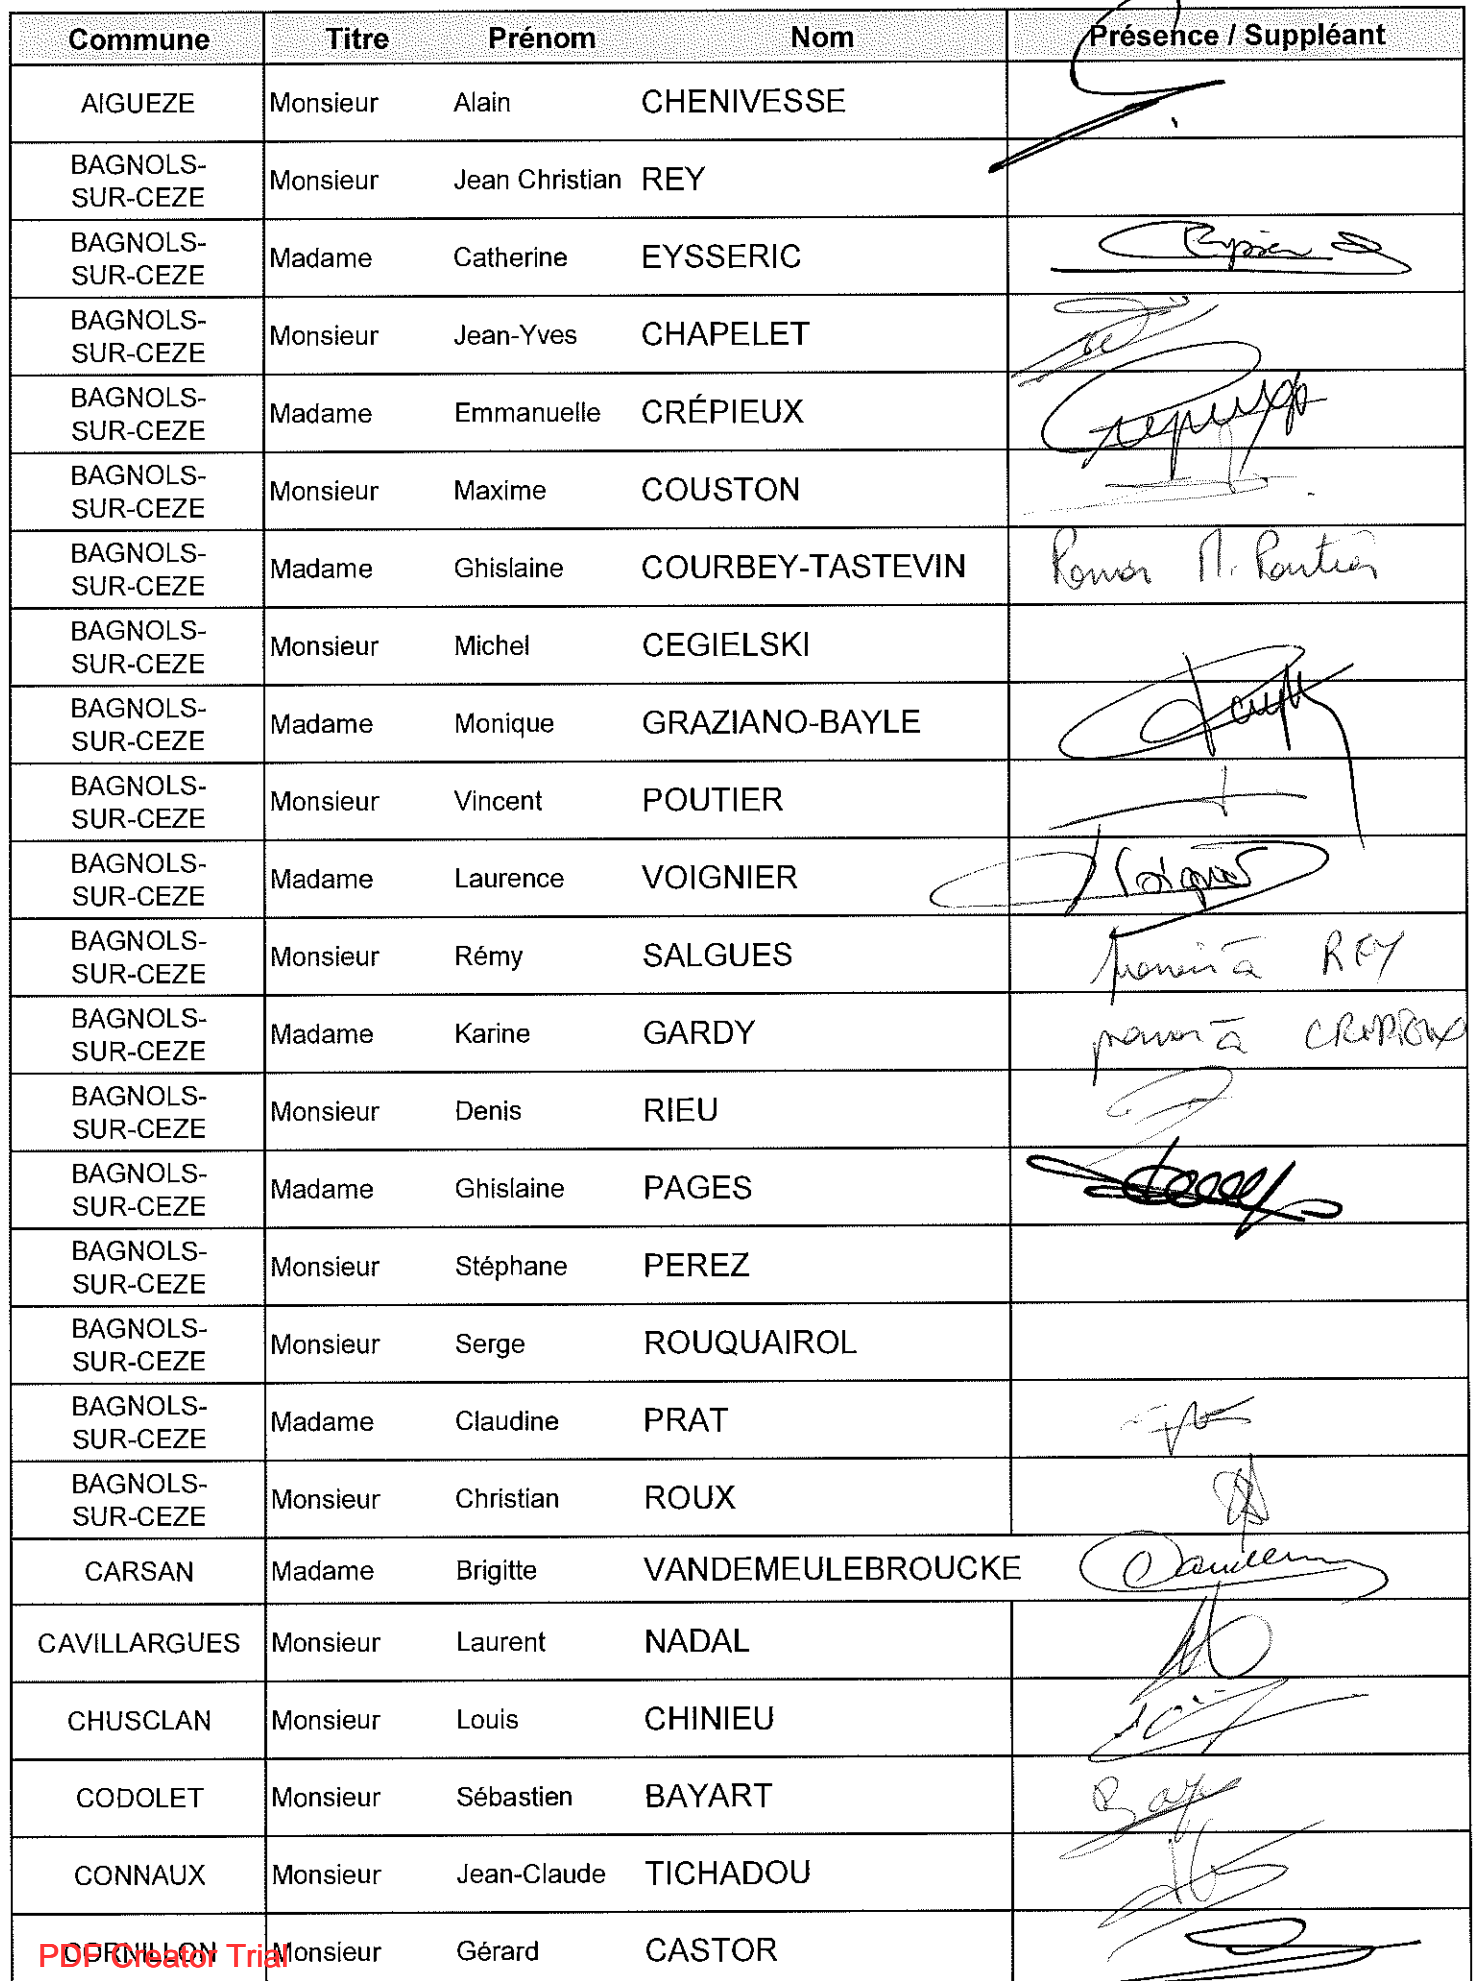 Commune Titre Prénom Nom Présence / Suppléant
AIGUEZE Monsieur Alain CHENIVESSE
BAGNOLS-
SUR-CEZE Monsieur Jean Christian REY
BAGNOLS-
SUR-CEZE Madame Catherine EYSSERIC
BAGNOLS-
SUR-CEZE Monsieur Jean-Yves CHAPELET
BAGNOLS-
SUR-CEZE Madame Emmanuelle CRÉPIEUX
BAGNOLS-
SUR-CEZE Monsieur Maxime COUSTON
BAGNOLS-
SUR-CEZE Madame Ghislaine COURBEY-TASTEVIN
BAGNOLS-
SUR-CEZE Monsieur Michel CEGIELSKI
BAGNOLS-
SUR-CEZE Madame Monique GRAZIANO-BAYLE
BAGNOLS-
SUR-CEZE Monsieur Vincent POUTIER
BAGNOLS-
SUR-CEZE Madame Laurence VOIGNIER
BAGNOLS-
SUR-CEZE Monsieur Rémy SALGUES à REY
BAGNOLS-
SUR-CEZE Madame Karine GARDY à CREPIEUX
BAGNOLS-
SUR-CEZE Monsieur Denis RIEU
BAGNOLS-
SUR-CEZE Madame Ghislaine PAGES
BAGNOLS-
SUR-CEZE Monsieur Stéphane PEREZ
BAGNOLS-
SUR-CEZE Monsieur Serge ROUQUAIROL
BAGNOLS-
SUR-CEZE Madame Claudine PRAT
BAGNOLS-
SUR-CEZE Monsieur Christian ROUX
CARSAN Madame Brigitte VANDEMEULEBROUCKE
CAVILLARGUES Monsieur Laurent NADAL
CHUSCLAN Monsieur Louis CHINIEU
CODOLET Monsieur Sébastien BAYART
CONNAUX Monsieur Jean-Claude TICHADOU
CORNILLON Monsieur Gérard CASTOR
PDF Creator Trial